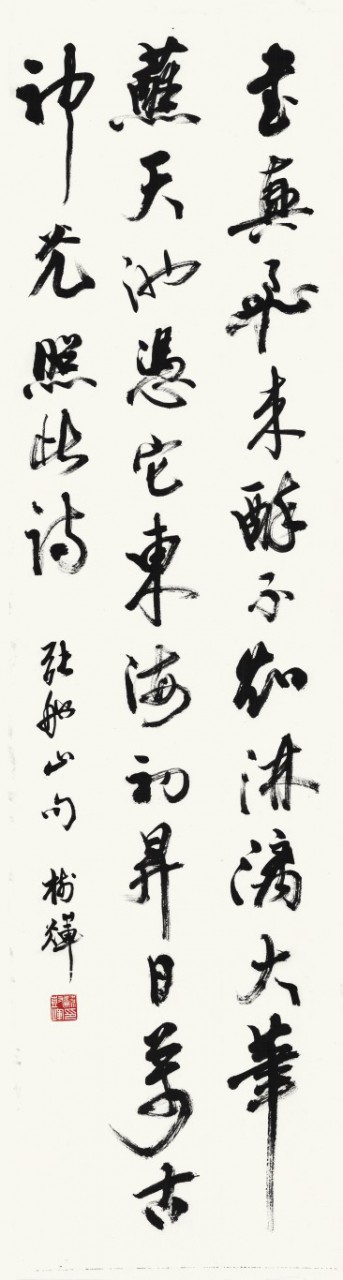 真飛来醉不知淋漓大筆
蘸天池憑它東海初昇日萬古
神光照此詩
張船山句 樹輝